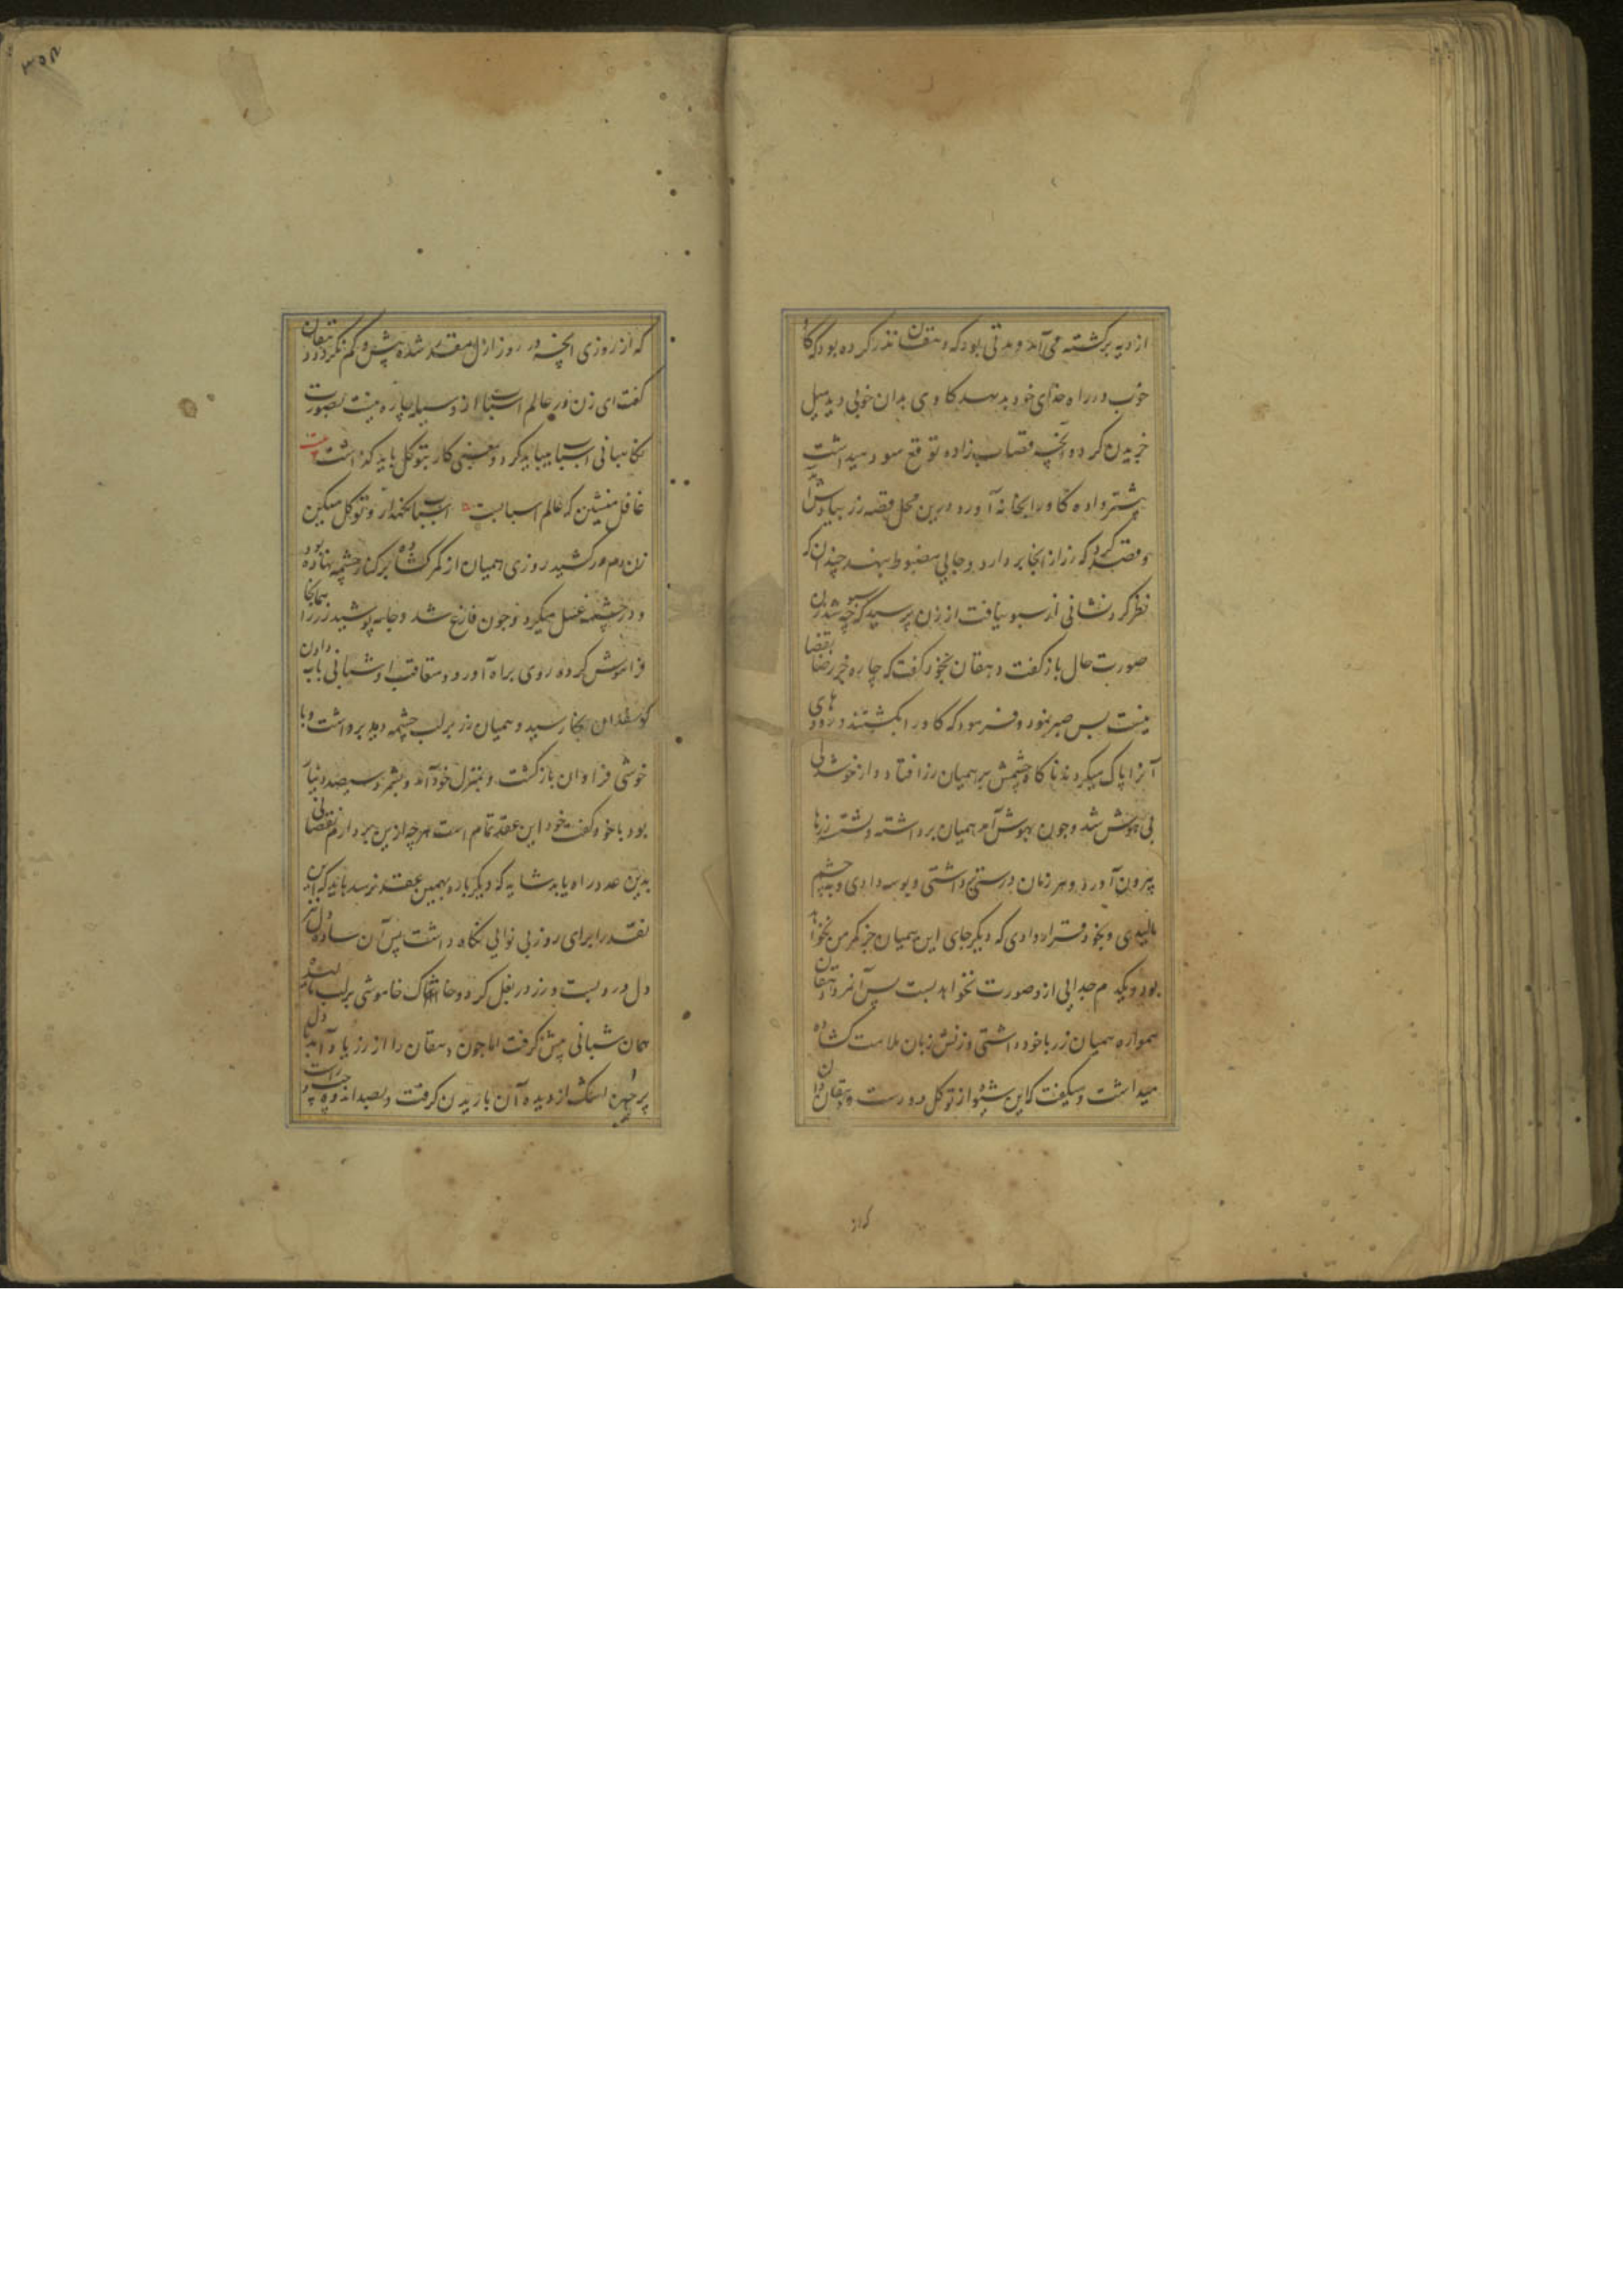 از دیه برگشته می‌آمد و مدتی بود که دهقان نذر کرده بود که گاو
خوب در راه خدای خود بدهد گاوی بدان خوبی دید میل
خریدن کرد و آنچه قصاب زاده توقع سود میداشت
بیشتر داده گاو را بخانه آورد درین محل قصه زر بیادش آمد
و قصد کرد که زر از انجا بردارد و جایی مضبوط بنهد چندان که
نظر کرد نشانی از سبو نیافت از زن پرسید که سبو چه شد زن
صورت حال باز گفت دهقان بخود گفت که چاره جز رضا بقضا
نیست پس صبر نمود و فرمود که گاو را بکشتند و رودهای
آنرا پاک میکردند ناگاه چشمش بر همیان زر افتاد و از خوشدلی
بی هوش شد و چون بهوش آمد همیان برداشته و شسته زرها
بیرون آورد و هر زمان درستی برداشتی و بوسه دادی و بچشم
مالیدی و بخود قرار دادی که دیگر جای این همیان جز کمر من نخواهد
بود و یکدم جدایی از و صورت نخواهد بست پس آنمرد دهقان
همواره همیان زر با خود داشتی و زنش زبان ملامت گشاده
میداشت و میگفت که این شیوه از توکل دورست دهقان را
که از
که از روزی آنچه در روز ازل مقدر شده بیش و کم نگردد دهقان
گفت ای زن در عالم اسباب از وسیله چاره نیست بصورت
نگاهبانی اسباب میباید کرد و بمعنی کار بتوکل باید گذاشت بیت
غافل منشین که عالم اسبابست اسباب نگهدار و توکل میکن
زن دم درکشید روزی همیان از کمر گشاده بر کنار چشمه نهاده بود
و در چشمه غسل میکرد و چون فارغ شد و جامه پوشید زر را همانجا
فراموش کرده روی براه آورد و متعاقب او شبانی بآب دادن
گوسفندان بکنار رسید و همیان زر بر لب چشمه دید برداشت و با
خوشی فراوان بازگشت و بمنزل خود آمد و بشمرد سیصد دینار
بود با خود گفت خود این عقد تمام است هر چه ازین بردارم نقصانی
بدین عدد راه یابد شاید که دیگر باره بهمین عقد نرسد باید که این
نقد را برای روز بی نوایی نگاه داشت پس آن ساده دل نیز
دل درو بست و زر در بغل کرد و خاشاک خاموشی بر لب نهاده
همان شبانی پیش گرفت اما چون دهقان را از زر یاد آمد دل
پر حسرت اشک از دیده آن باریدن گرفت و بصد اندوه